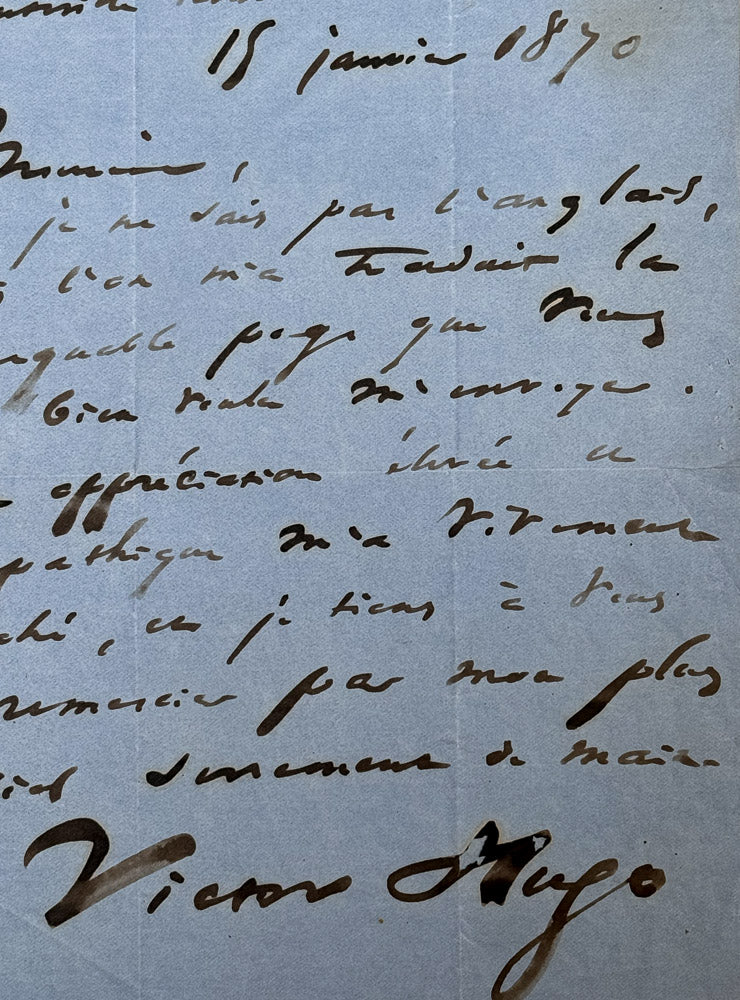 15 janvier 1870
Monsieur,
je ne sais pas l'anglais,
l'on m'a traduit la
rquable page que vous
bien voulu m'envoyer.
appréciation élevée et
pathique m'a vivement
ché, et je tiens à vous
remercier par mon plus
ial serrement de main.
Victor Hugo